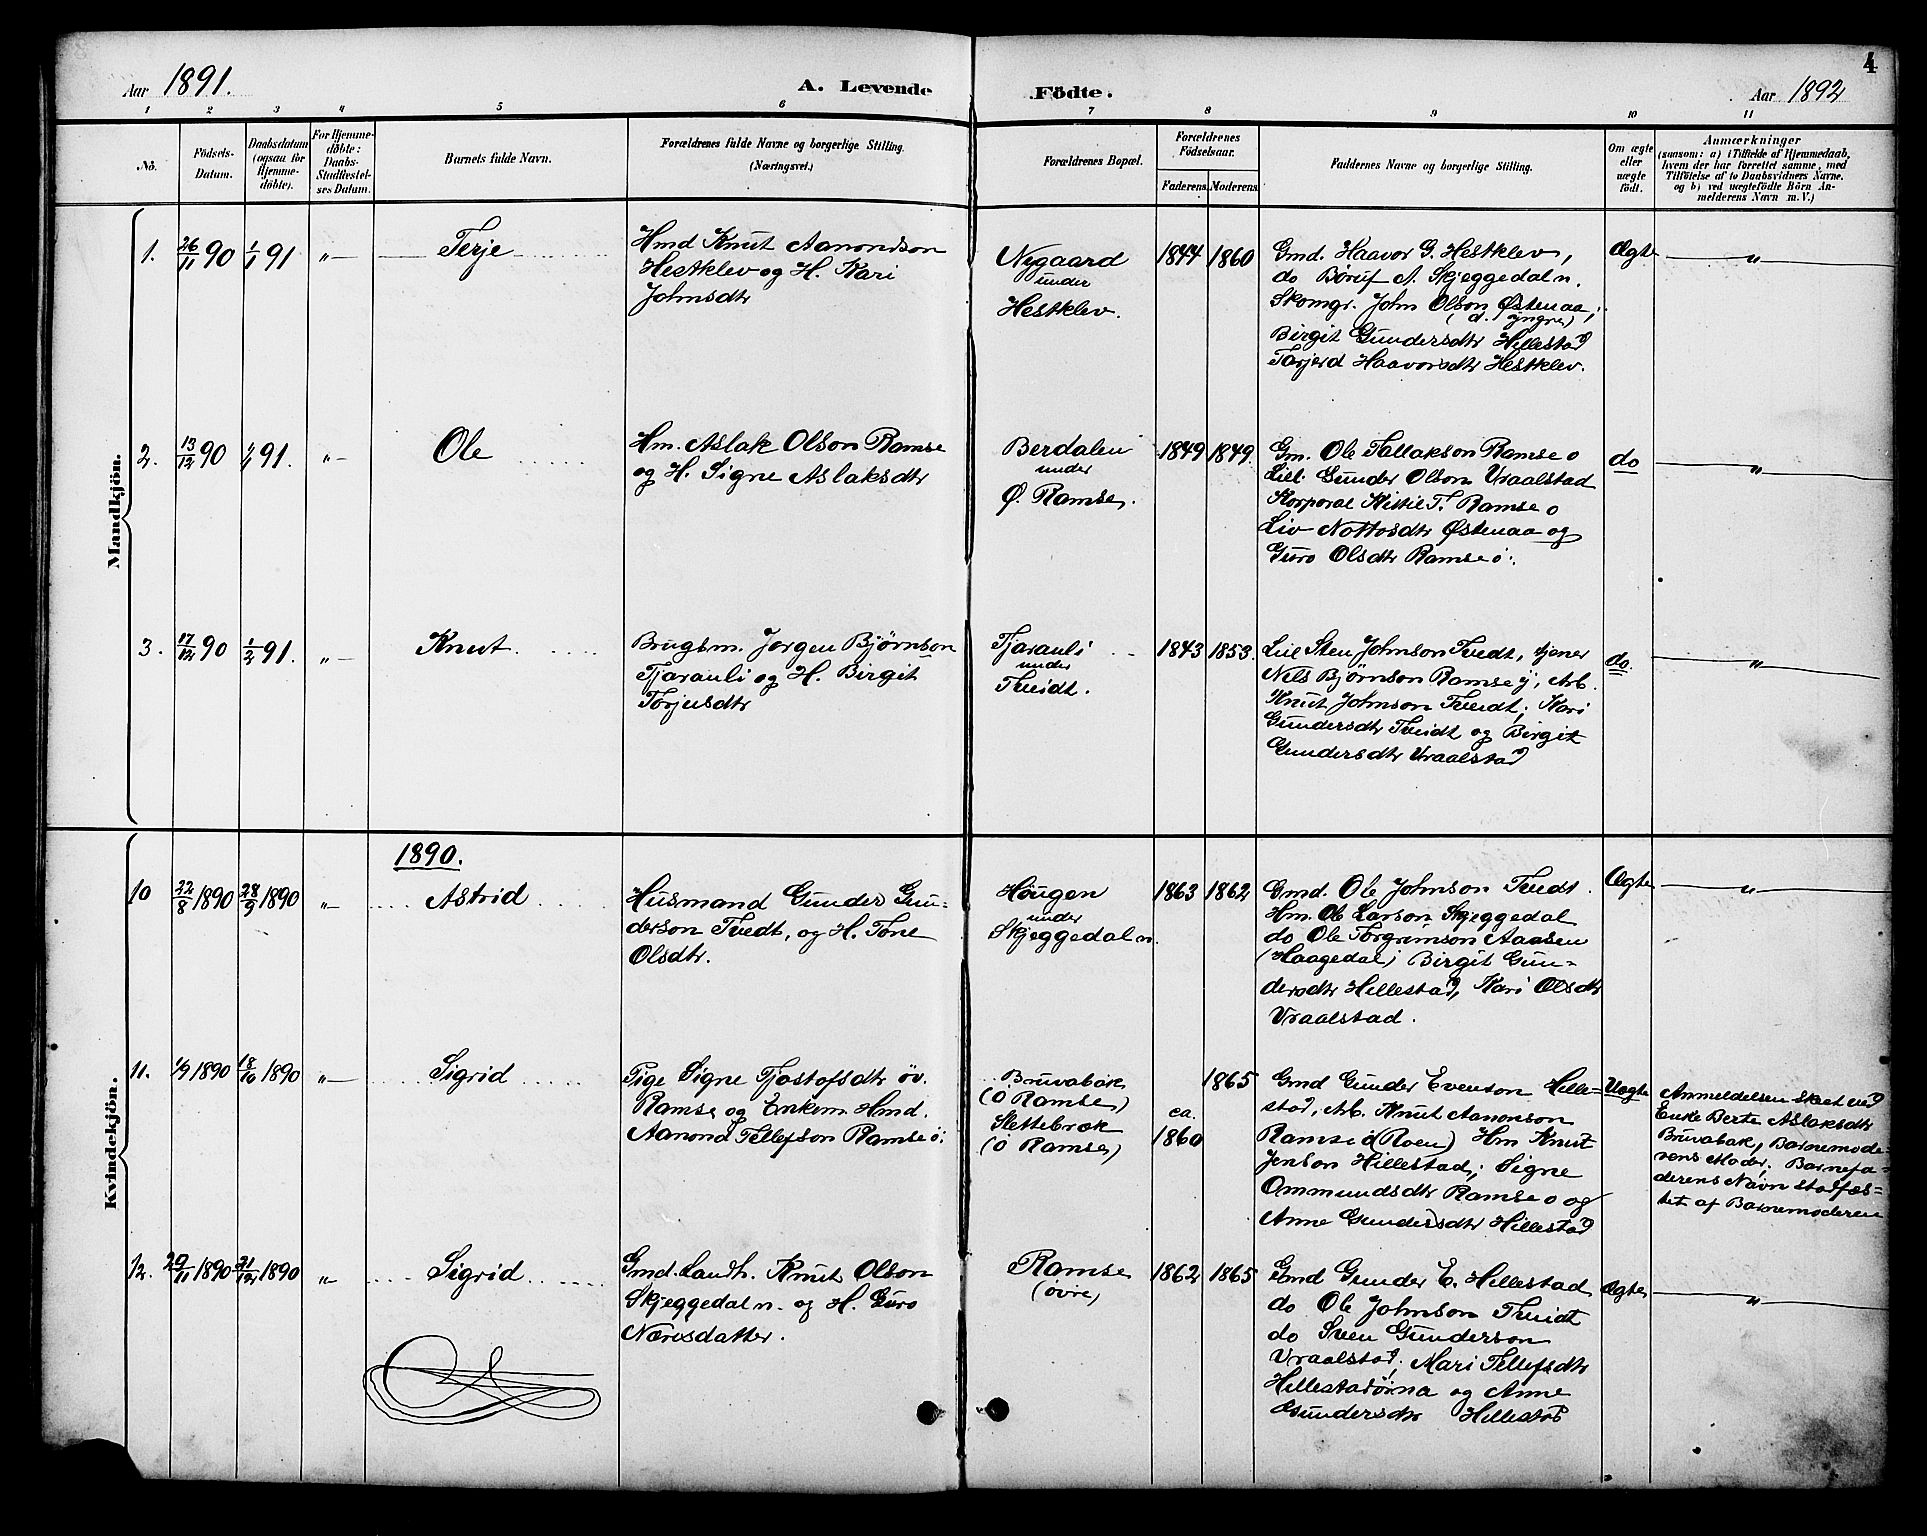 4
Aar 1891.
A. Levende Födte.
Aar 1892
1 2 3 4 5 6 7 8 9 10 11
No.
Födsels-
Datum.
Daabsdatum
(ogsaa for
Hjemme-
döbte).
For Hjemme-
döbte:
Daabs-
Stadfæstel-
ses Datum.
Barnets fulde Navn.
Forældrenes fulde Navne og borgerlige Stilling.
(Næringsvei.)
Forældrenes Bopæl.
Forældrenes
Födselsaar.
Faderens. Moderens.
Faddernes Navne og borgerlige Stilling.
Om ægte
eller
uægte
födt.
Anmærkninger
(saasom: a) i Tilfælde af Hjemmedaab,
hvem der har forrettet samme, med
Tilföielse af to Daabsvidners Navne.
og b) ved uægtefödte Börn An-
melderens Navn m. V.)
Mandkjön.
1. 26/11 90 1/1 91 " Terje
Hmd Knut Aanondson
Hestklev og H. Kari
Johnsdtr
Nygaard
under
Hestklev.
1844 1860
Gmd. Haavor G. Hestklev,
do A. Skjeggedal n.
Skomgr. John Olson Østenaa,
(d. yngre)
Birgit Gundersdtr Hillestad
Torjerd Haavorsdtr Hestklev.
Ægte "
2. 13/12 90 91. " Ole
Hm. Aslak Olson Ramse
og H. Signe Aslaksdtr
Berdalen
under
Ø. Ramse.
1849 1849
Gm. Ole Tallakson Ramse o
Gunder Olson Vraalstad
Korporal Kittil T. Ramse o
Liv Nottosdtr Østenaa og
Guro Olsdtr Ramse ö.
do "
3. 17/12 90 1/2 91. " Knut.
Brugsm. Jorgen Bjørnson
Tjarauli og H. Birgit
Torjusdtr
Tjarauli
under
Tveidt.
1843 1853.
Sten Johnson Tvedt, tjener
Nils Bjørnson Ramse y, Arb.
Knut Johnson Tvedt; Kari
Gundersdtr Tveidt og Birgit
Gundersdtr Vraalstad
do. "
Kvindekjön.
1890.
10 22/8 1890 28/9 1890 " Astrid
Husmand Gunder Gun-
derson Tvedt, og H. Tone
Olsdtr.
Høugen
under
Skjeggedal n.
1863 1862
Gmd. Ole Johnson Tvedt.
Hm. Ole Larson Skjeggedal
do Ole Torgrimson Aaasen
(Haagedal; Birgit Gun-
dersdtr Hillestad, Kari Olsdtr
Vraalstad.
Ægte "
11. 1/9 1890 18/10 1890 " Sigrid
Pige Signe Tjostofsdtr öv.
Ramse og Enkem. Hmd.
Aanond Tellefson Ramse ö:
Bruvabak
(Ö Ramse)
Slettebræk
(Ö Ramse)
ca.
1860
1865
Gmd Gunder Evenson Hille-
stad, Arb. Knut Aanonson
Ramse ö (Roen) Hm Knut
Jenson Hillestad; Signe
Ommundsdtr Ramse o og
Anne Gundersdtr Hillestad
Uægte
Anmeldelsen skeet ved
Enke Berte Aslaksdtr
Bruvabak, Barnemode-
rens Moder. Barnefa-
derens Navn stadfæs-
tet af Barnemoderen
12. 1890 21/12 1890 " Sigrid
Gmd. Landh. Knut Olson
Skjeggedal n. og H. Guro
Næresdatter.
Ramse
(övre)
1862 1865
Gmd Gunder E. Hillestad
do Ole Johnson Tveidt
do Sven Gunderson
Vraalstad, Mari Tellefsdtr
og Anne
Gundersdtr Hillestad
Ægte "